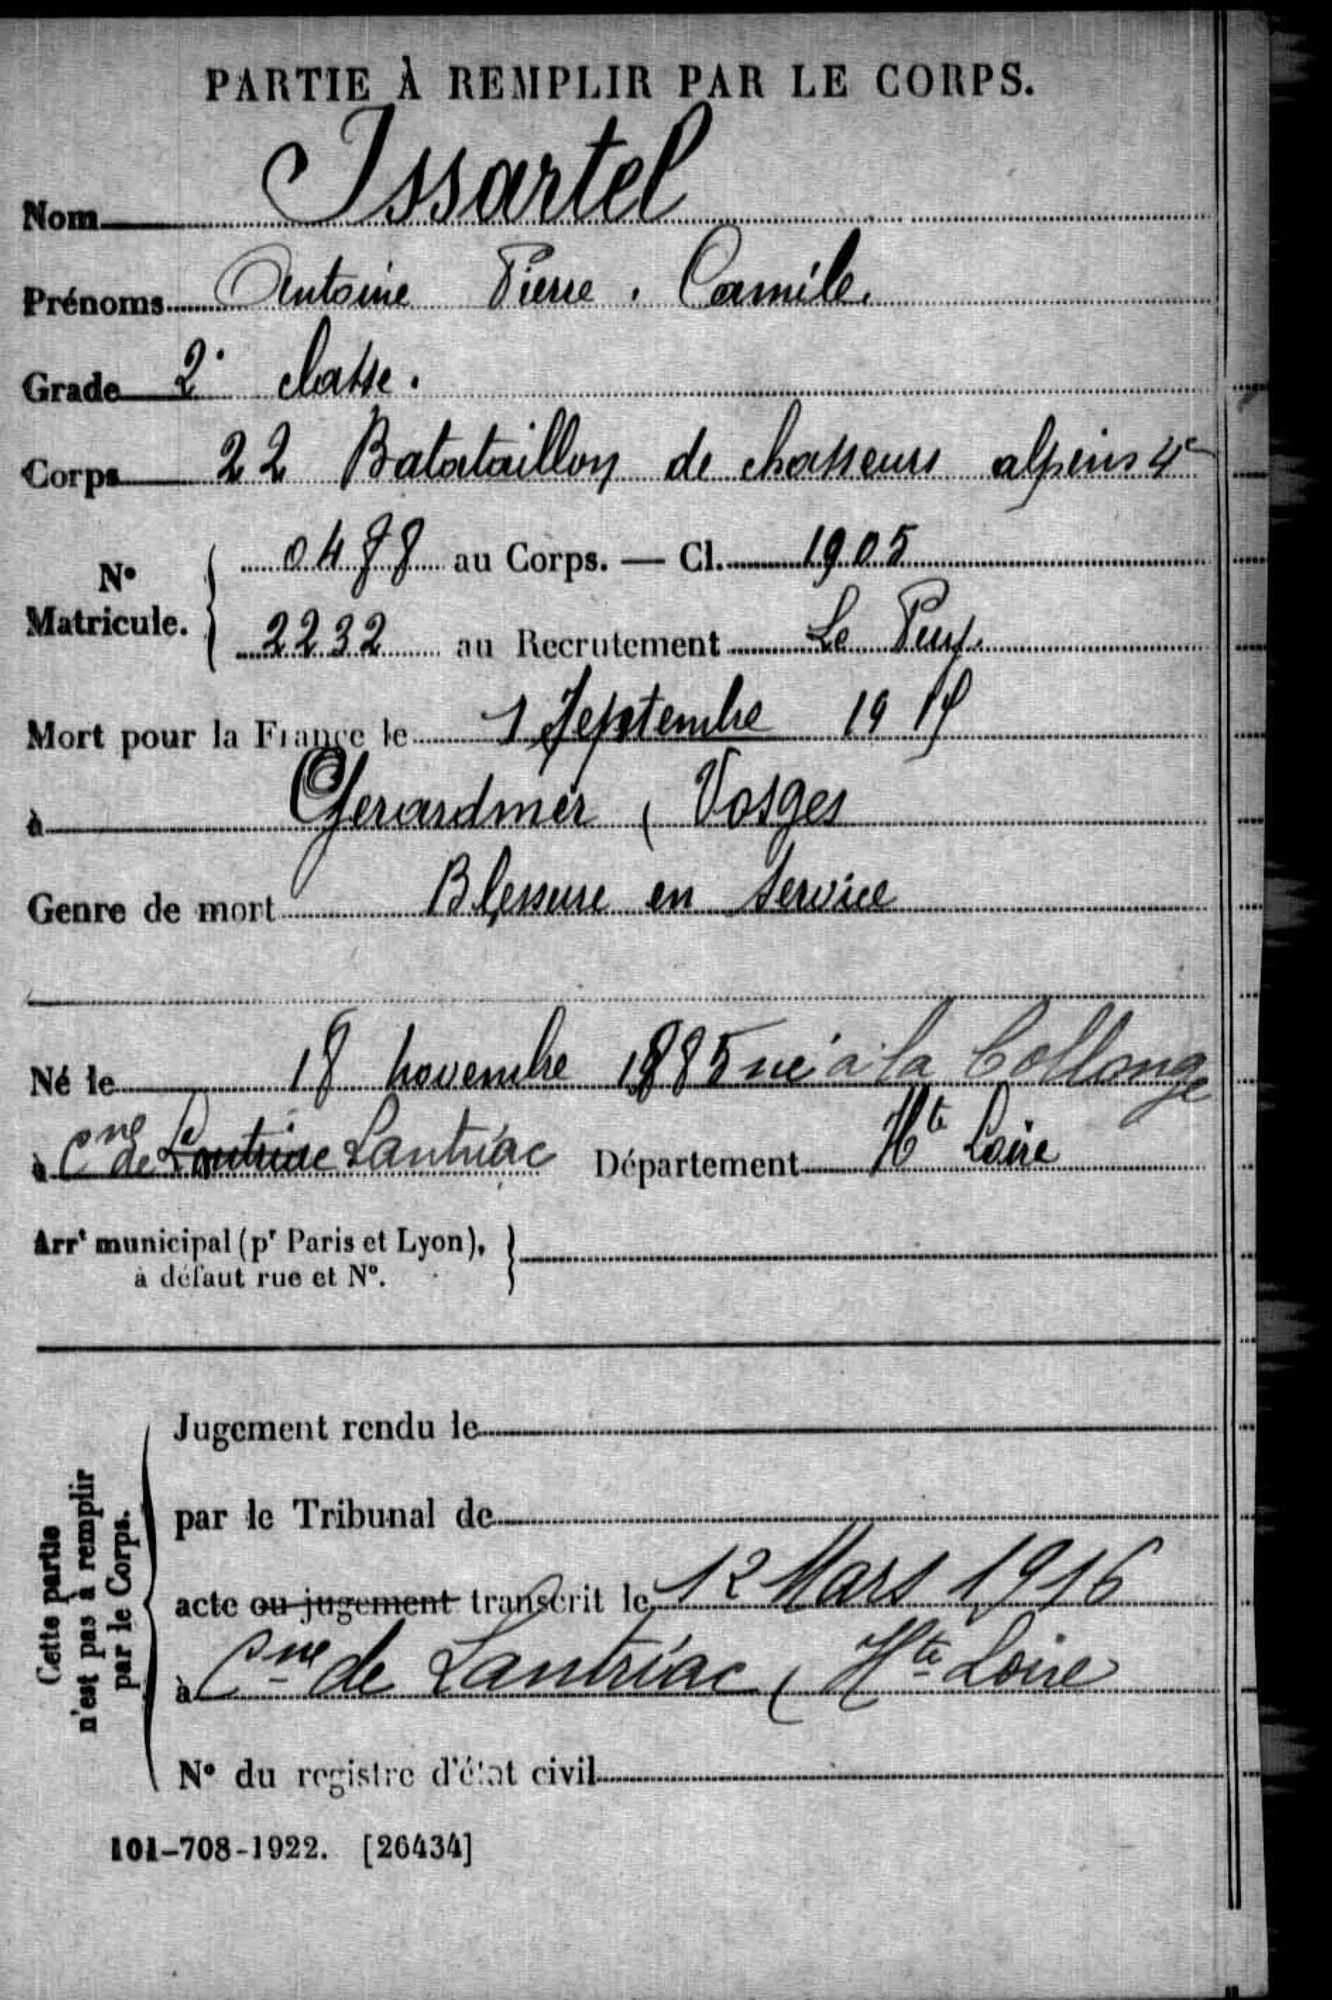 PARTIE À REMPLIR PAR LE CORPS.
Nom Issartel
Prénoms Antoine Pierre. Camile.
Grade 2e classe.
Corps 22 Batataillon de chasseurs alpins 4e
N° Matricule. 0488 au Corps. — Cl. 1905
2232 au Recrutement Le Puy.
Mort pour la France le 1 Septembre 1915
à Gerardmer ( Vosges
Genre de mort Blessure en service
Né le 18 novembre 1885 né à la Collange
à Cne de Lantriac Lantriac Département Hte Loire
Arrt municipal (pr Paris et Lyon),
à défaut rue et N°.
Cette partie
n'est pas à remplir
par le Corps.
Jugement rendu le
par le Tribunal de
acte ou jugement transcrit le 12 Mars 1916
à Cne de Lantriac ( Hte Loire
N° du registre d'état civil
101-708-1922. [26434]